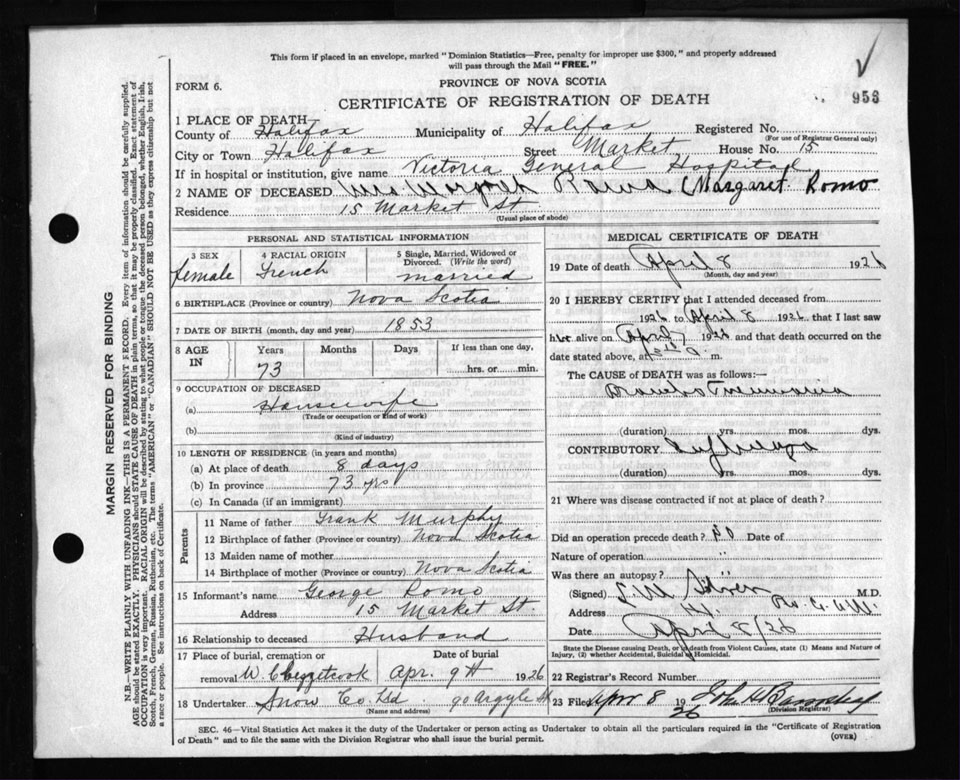 This form if placed in an envelope, marked "Dominion Statistics—Free, penalty for improper use $300," and properly addressed
will pass through the Mail "FREE."
FORM 6.
PROVINCE OF NOVA SCOTIA
CERTIFICATE OF REGISTRATION OF DEATH
953
1 PLACE OF DEATH
County of Halifax Municipality of Halifax Registered No.
(For use of Registrar General only)
City or Town Halifax Street Market House No. 15
If in hospital or institution, give name Victoria General Hospital
2 NAME OF DECEASED Mrs (Margaret Romo
Residence 15 Market St
(Usual place of abode)
PERSONAL AND STATISTICAL INFORMATION
3 SEX
female
4 RACIAL ORIGIN
French
5 Single, Married, Widowed or
Divorced. (Write the word)
married
6 BIRTHPLACE (Province or country) Nova Scotia
7 DATE OF BIRTH (month, day and year) 1853
8 AGE IN
Years Months Days If less than one day,
73 hrs. or min.
9 OCCUPATION OF DECEASED
(a) Housewife
(Trade or occupation or kind of work)
(b)
(Kind of industry)
10 LENGTH OF RESIDENCE (in years and months)
(a) At place of death 8 days
(b) In province 73 yrs
(c) In Canada (if an immigrant)
Parents
11 Name of father Frank Murphy
12 Birthplace of father (Province or country) Nova Scotia
13 Maiden name of mother
14 Birthplace of mother (Province or country) Nova Scotia
15 Informant's name George Romo
Address 15 Market St.
16 Relationship to deceased Husband
17 Place of burial, cremation or Date of burial
removal W. Chezzetcook Apr. 9th 1926
18 Undertaker Snow Co Ltd 90 Argyle St
(Name and address)
MEDICAL CERTIFICATE OF DEATH
19 Date of death April 8 1926
(Month, day and year)
20 I HEREBY CERTIFY that I attended deceased from
1926 to April 8 1926 that I last saw
her alive on April 7 1926 and that death occurred on the
date stated above, at m.
The CAUSE OF DEATH was as follows:—
Broncho Pneumonia
(duration) yrs. mos. dys.
CONTRIBUTORY Influenza
(duration) yrs. mos. dys.
21 Where was disease contracted if not at place of death?
Did an operation precede death? no Date of
Nature of operation "
Was there an autopsy?
(Signed) M.D.
Address
Date April 8/26
State the Disease causing Death, or if death from Violent Causes, state (1) Means and Nature of
Injury, (2) whether Accidental, Suicidal or Homicidal.
22 Registrar's Record Number
23 Filed Apr 8 1926
(Division Registrar)
SEC. 46—Vital Statistics Act makes it the duty of the Undertaker or person acting as Undertaker to obtain all the particulars required in the "Certificate of Registration
of Death" and to file the same with the Division Registrar who shall issue the burial permit.
(OVER)
MARGIN RESERVED FOR BINDING
N.B.—WRITE PLAINLY WITH UNFADING INK—THIS IS A PERMANENT RECORD. Every item of information should be carefully supplied.
AGE should be stated EXACTLY. PHYSICIANS should STATE CAUSE OF DEATH in plain terms, so that it may be properly classified. Exact statement of
OCCUPATION is very important. RACIAL ORIGIN will be described by stating to what people or tongue the deceased person belonged, whether English, Irish,
Scotch, French, German, Russian, Ruthenian, etc. The terms "AMERICAN" or "CANADIAN" SHOULD NOT BE USED as they express citizenship but not
a race or people. See instructions on back of Certificate.